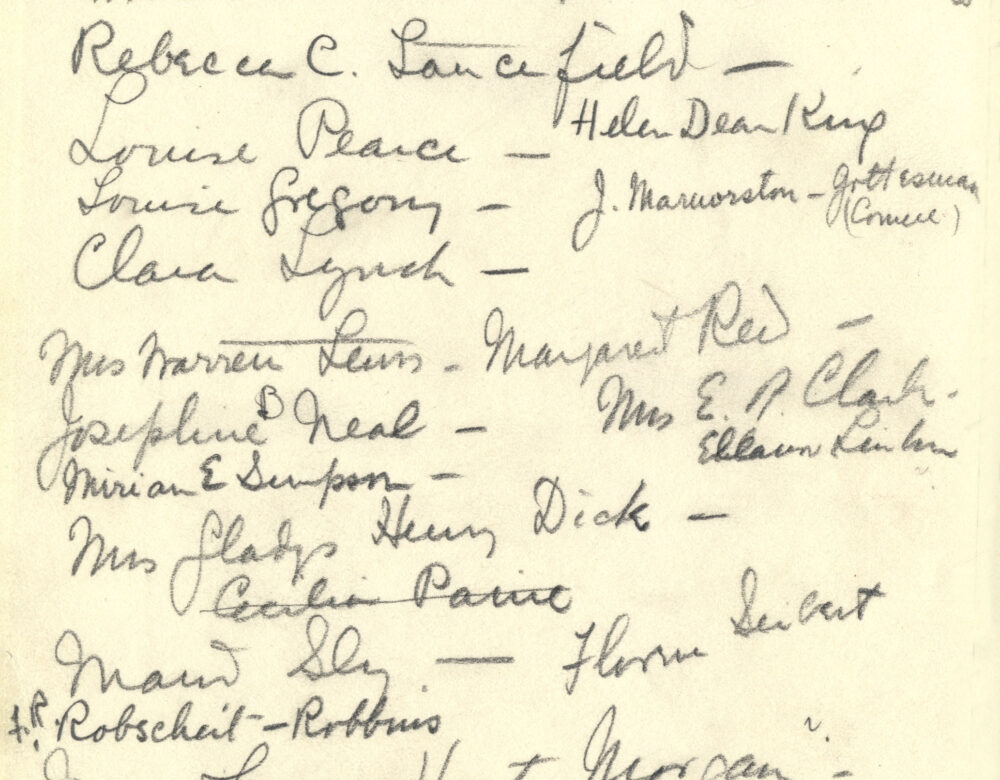 Rebecca C. Lancefield —
Louise Pearce — Helen Dean King
Louise Gregory — J. Marmorston - Gottesman
(Cornell)
Clara Lynch —
Mrs Warren Lewis - Margaret Reed —
Josephine B Neal — Mrs E. P. Clark -
Eleanor Linton
Miriam E Simpson —
Mrs Gladys Henry Dick —
Cecilia Paine
Maud Slye — Florence Seibert
F. R. Robscheit - Robbins
Morgan -